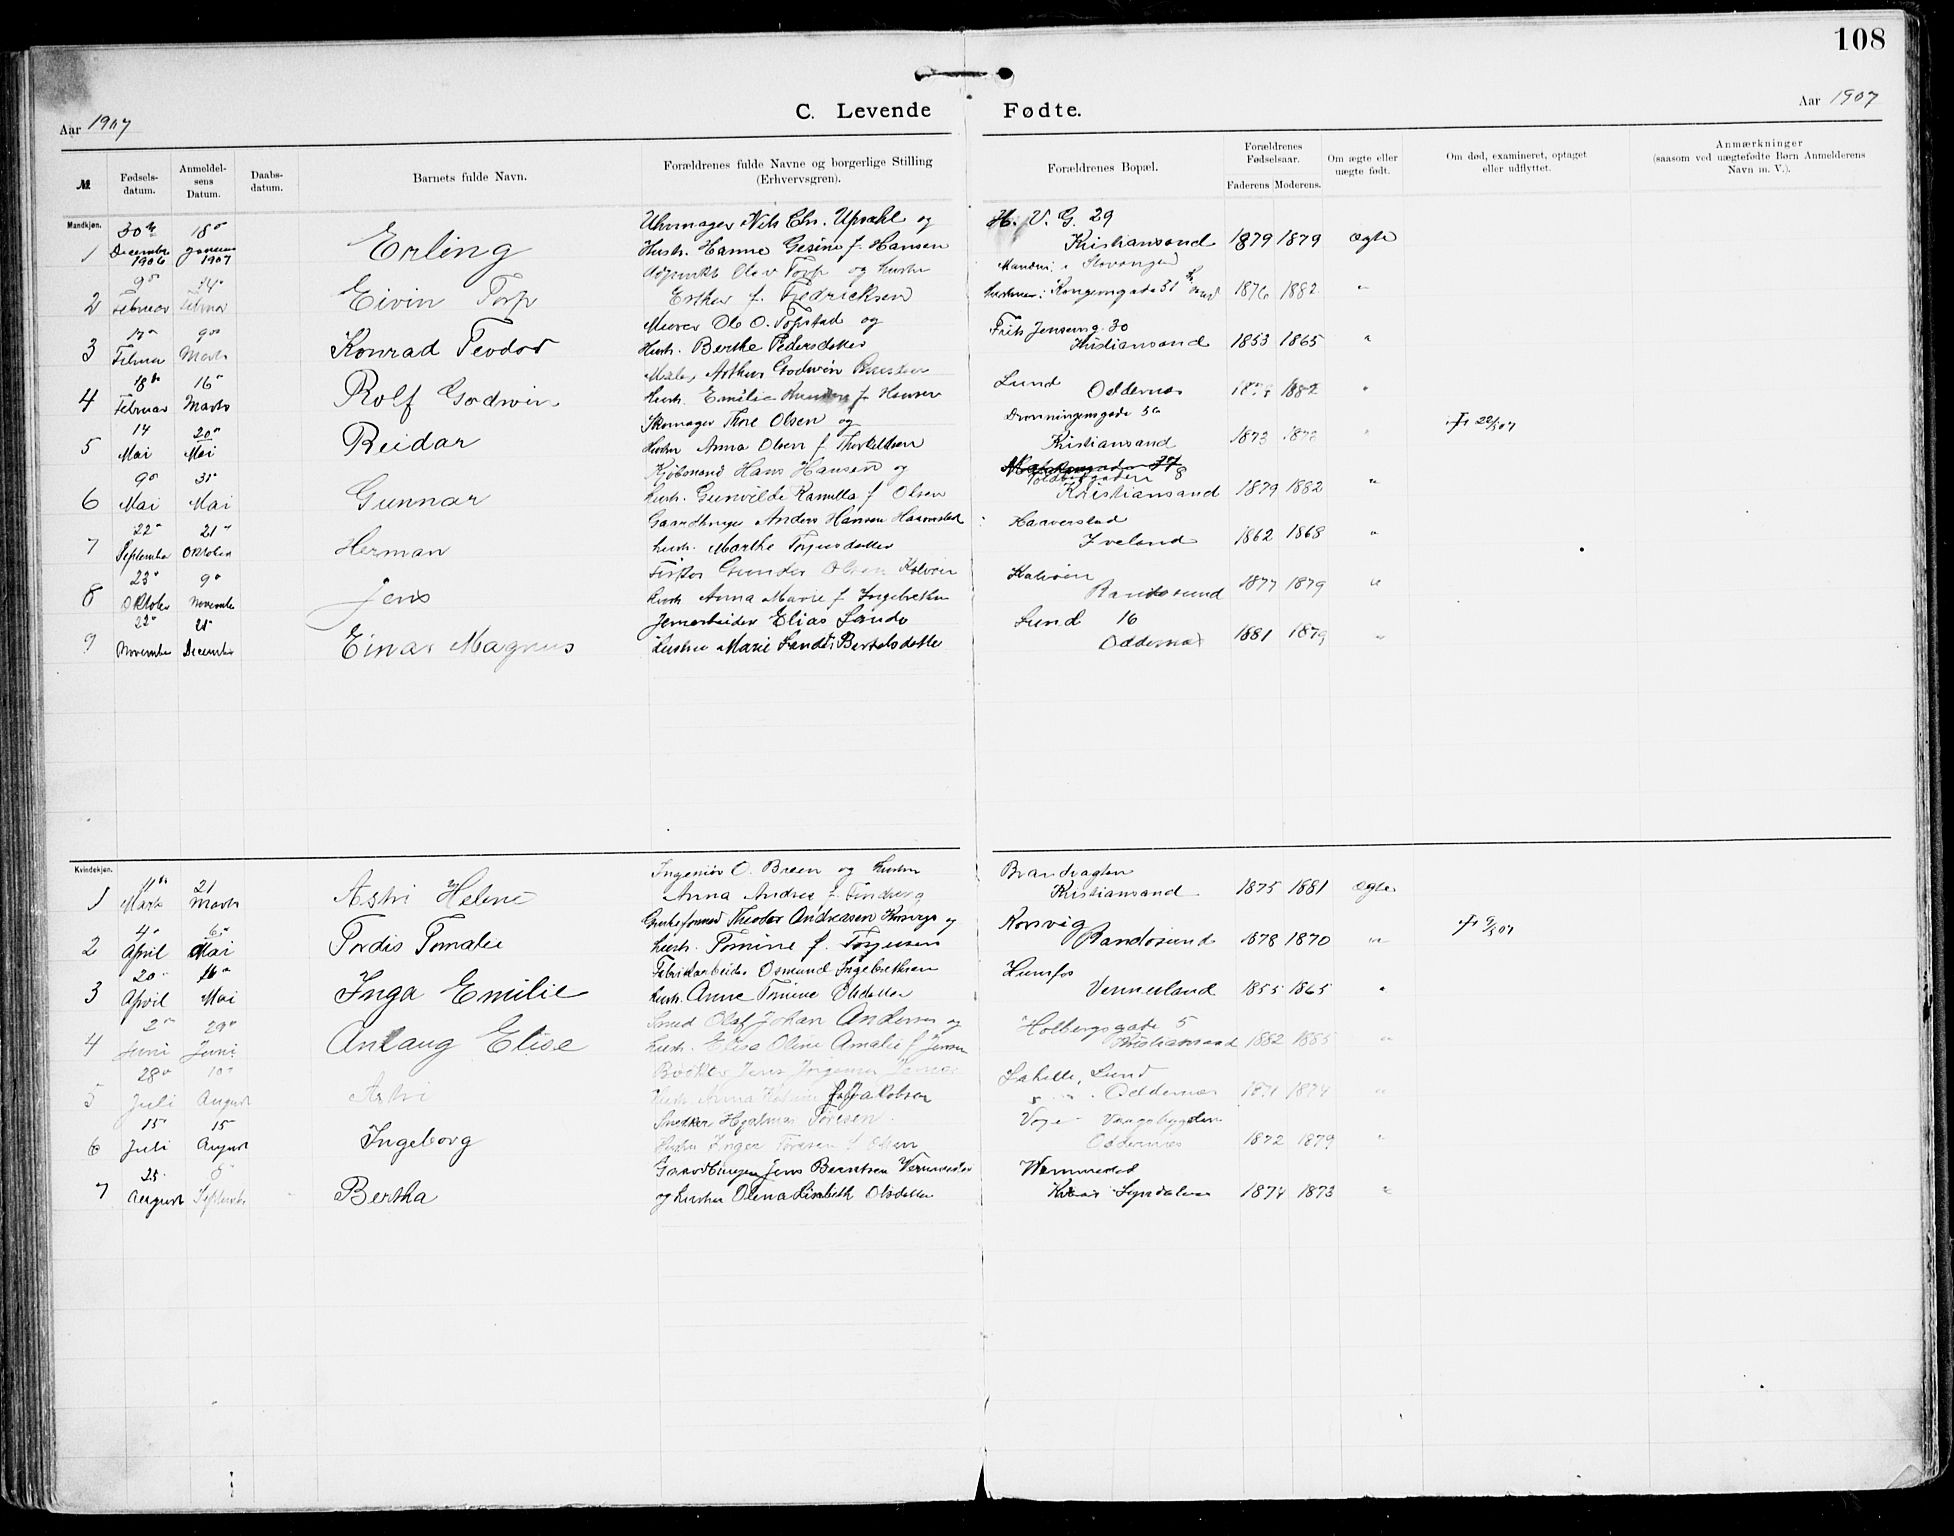 108
Aar 1907
C. Levende Fødte.
Aar 1907
№ Fødsels-datum. Anmeldel-sens Datum. Daabs-datum. Barnets fulde Navn. Forældrenes fulde Navne og borgerlige Stilling (Erhvervsgren). Forældrenes Bopæl. Forældrenes Fødselsaar. Faderens Moderens. Om ægte eller uægte født. Om død, examineret, optaget eller udflyttet. Anmærkninger (saasom ved uægtefødte Børn Anmelderens Navn m. V.).
Mandkjøn.
30te 18de Uhrmager Nils Chr. Upsahl og H. V. G. 29
1 December 1906 januar 1907 Erling Hustr. Hanne Gesine f. Hansen Kristiansand 1879 1879 ægte
9de 14de Adjunkt Olav Torp og hustru Manden i Stavanger
2 Februar Februar Eivin Torp Esther f. Fredricksen hustruen: Kongensgade 31 1876 1882 "
17de 9de Murer Ole O. Topstad og Frits Jensensg. 30
3 Februar Marts Konrad Teodor Hustr. Berthe Pedersdatter Kristiansand 1853 1865 "
18de 16de Maler Arthur Godwin Lund
4 Februar Marts Rolf Godwin Hustr. Emilie f. Hansen Oddernæs 1882 "
14 20de Skomager Thore Olsen og Dronningensgade 56
5 Mai Mai Reidar Hustru Anna Olsen f. Thorkildsen Kristiansand 1873 1872 " 20/5 07
9de 31te Kjøbmand Hans Hansen og
6 Mai Mai Gunnar hustr. Gunvilde Kamilla f. Olsen Kristiansand 1879 1882 "
22de 21de Gaardbruger Anders Hansen Haaverstad Haaverstad
7 September Oktober Herman hustr. Marthe Torjusdatter Iveland 1862 1868 "
23de 9de Gunder Olsen Kalvøen Kalvøen
8 Oktober November Jens hustr. Anna Marie f. Ingebretsen Randøsund 1877 1879 "
22de 21de Jernarbeider Elias Sandø Lund 16
9 November December Einar Magnus hustru Marie Sandø f. Bertelsdatter Oddernæs 1881 1879 "
Kvindekjøn.
11te 21 Ingeniør O. Breen og hustru Brandvagten
1 Marts Marts Astri Helene Anna Andrea f. Lindberg Kristiansand 1875 1881 ægte
4de 6te Theodor Andreasen Korsvig og Korsvig
2 April Mai Tordis Tomalie hustr. Tomine f. Torjusen Randøsund 1878 1870 " 9/5 07
20de 16de Fabrikarbeider Osmund Ingebretsen Hunsfos
3 April Mai Inga Emilie hustr. Anne Tomine Olsdatter Vennesland 1855 1865 "
2den 29de Smed Olaf Johan Andersen og Holbergsgade 5
4 Juni Juni Anlaug Elise hustr. Elisa Oline Amalie f. Jensen Kristiansand 1882 1885 "
28de 10de Jens Jørgensen Lahelle, Lund
5 Juli August Astri hustr. Anna f. Jakobsen Oddernæs 1871 1874 "
15de 15 Snedker Hjalmar Toresen Voje Vaagsbygden
6 Juli August Ingeborg Hustru Inger Toresen f. Olsen Oddernæs 1872 1879 "
25 Gaardbruger Jens Berntsen Vemmestad Vemmestad
7 August September Bertha og hustru Olena Lisabeth Olsdatter Lyngdalen 1874 1873 "